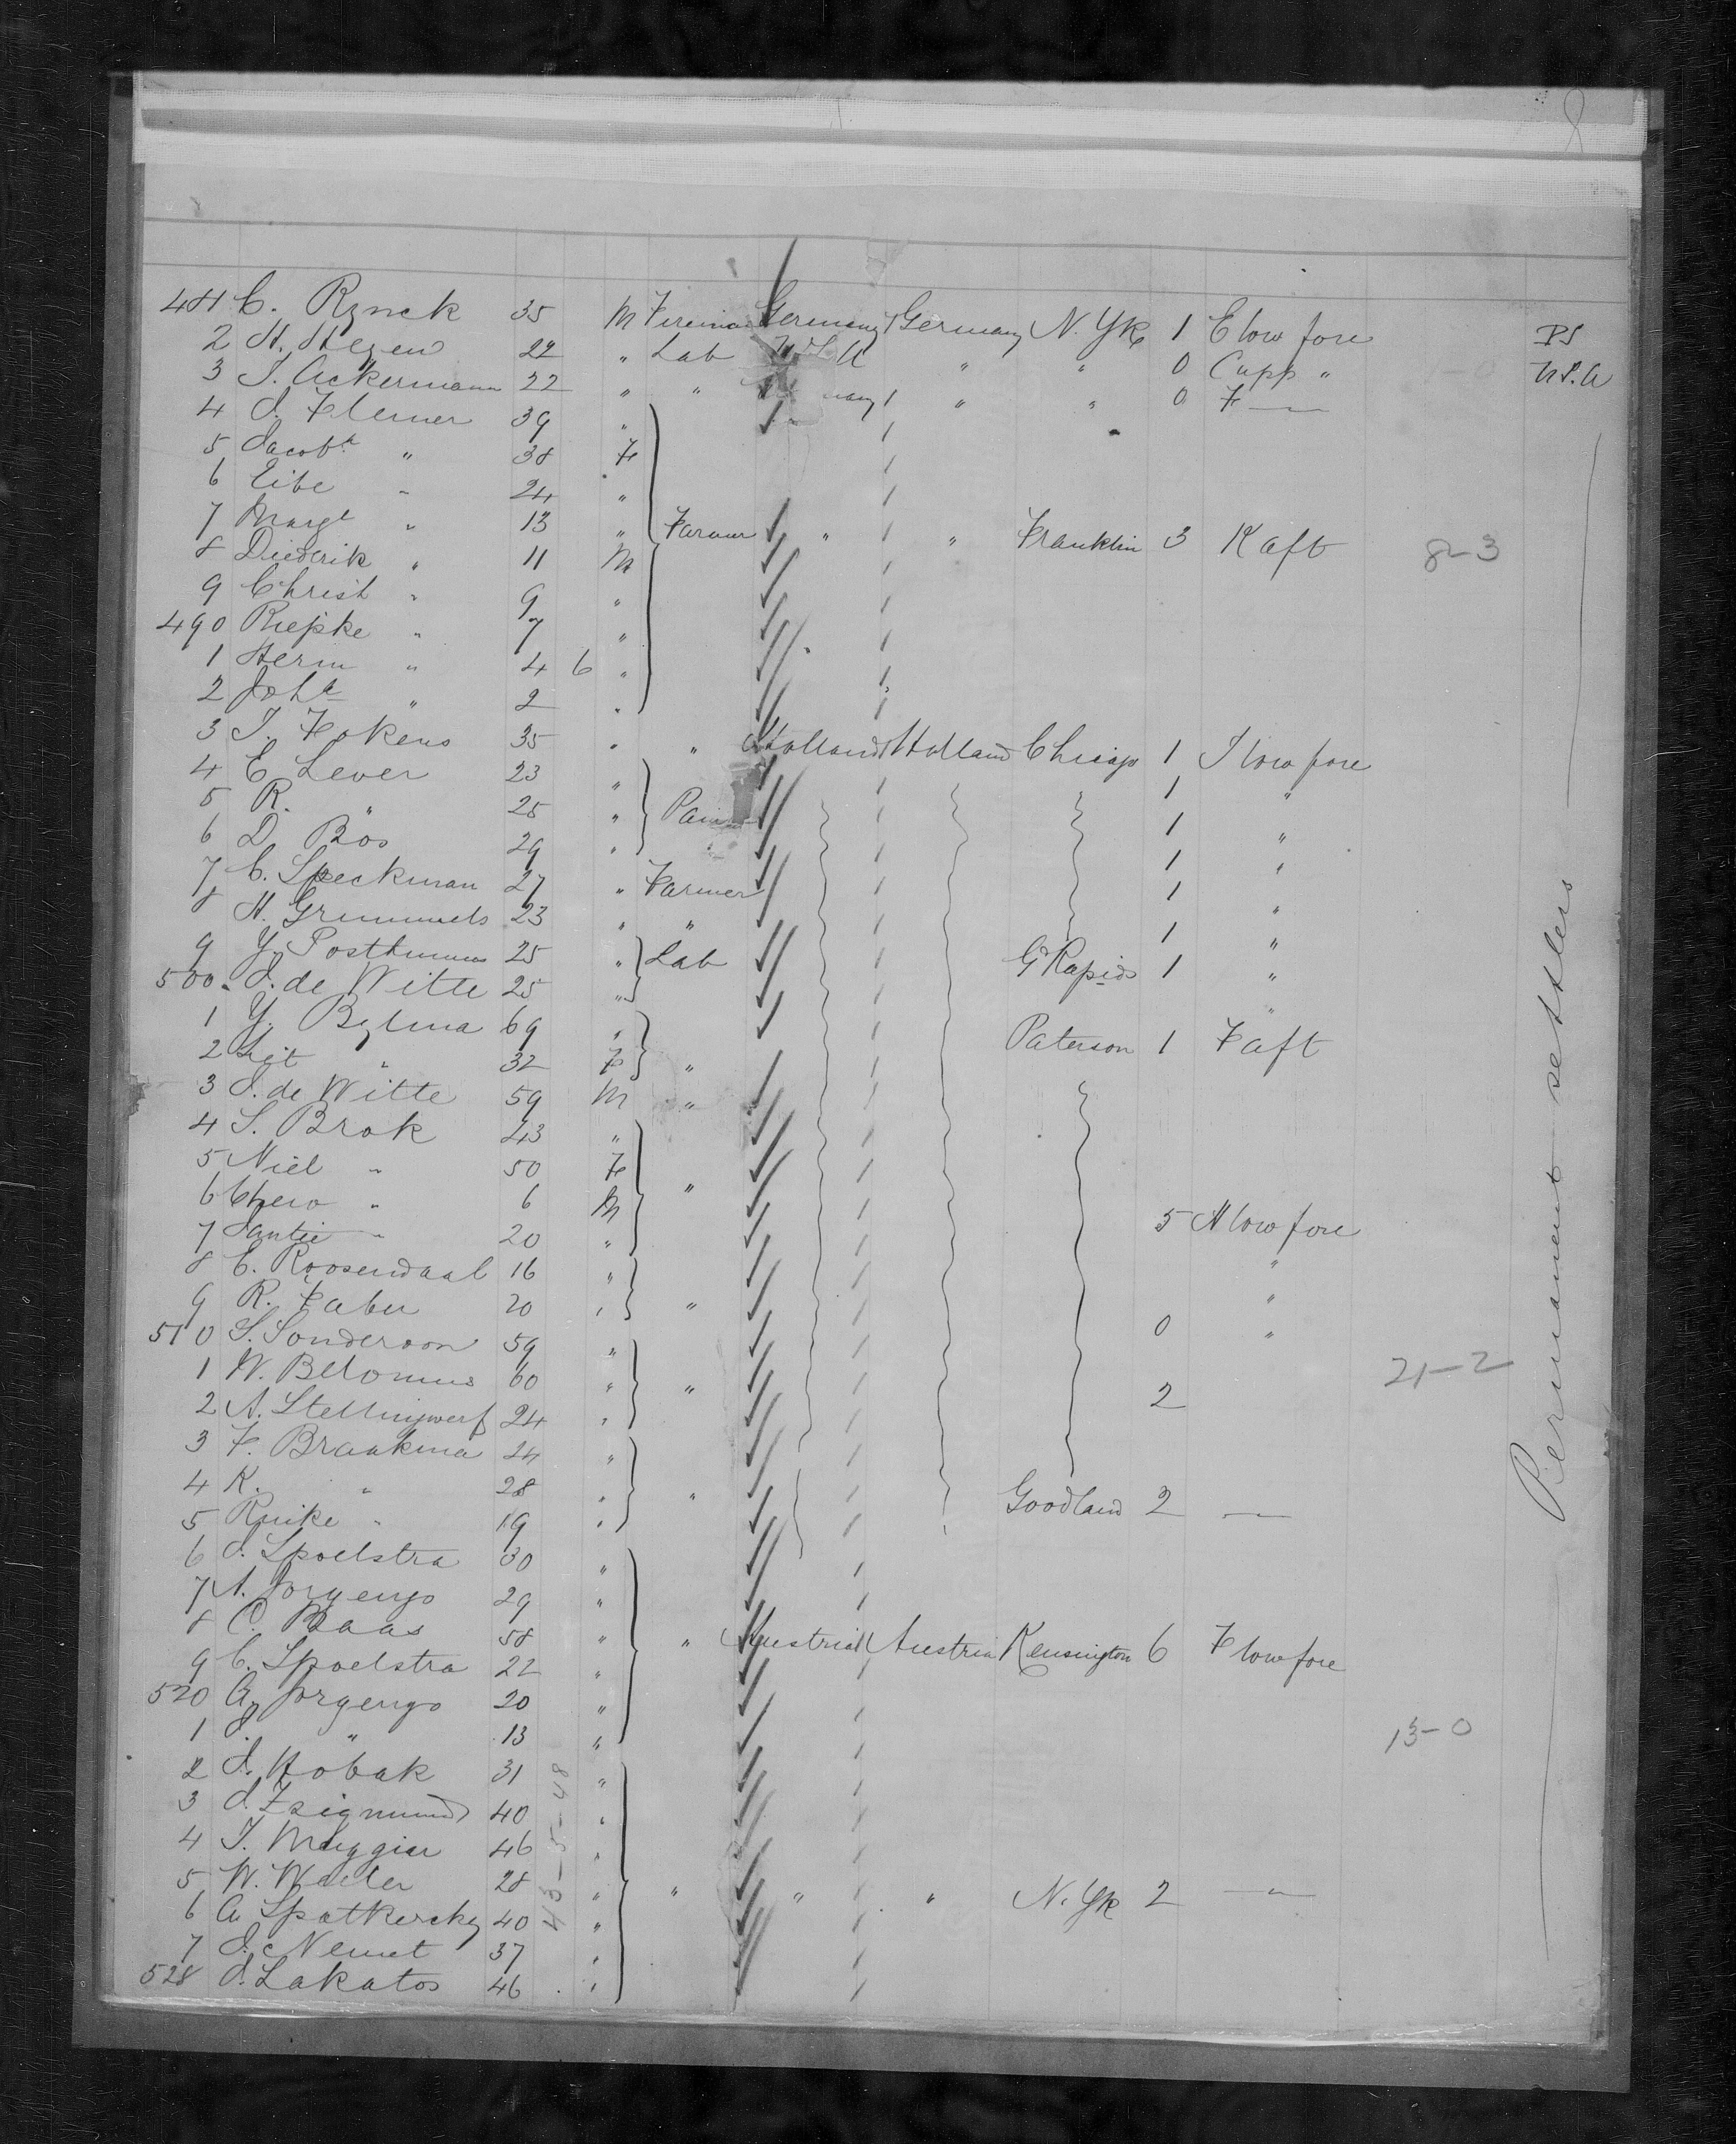 481 C. Rynck 35 M Fireman Germany Germany N. Yk 1 E low fore PS
2 H. Hegen 22 " Lab U S A " " 0 Cupp " U.S.A
3 J. Ackermann 22 " " many " " 0 F —"—
4 J. Flemer 39 "
5 Jacobᵃ " 38 F
6 Eibe " 24 "
7 Margᵗ " 13 " Farmer " " Franklin 3 K aft 8-3
8 Diederik " 11 M
9 Christ " 9 "
490 Riepke " 7 "
1 Herm " 4 6 "
2 Johᵃ " 2 "
3 J. Fokens 35 " " Holland Holland Chicago 1 I low fore
4 E Lever 23 " 1 "
5 R. " 25 " Pain 1 "
6 D. Bos 29 " 1 "
7 C. Speckman 27 " Farmer 1 "
8 H. Grummels 23 " " 1 "
9 Y. Posthumus 25 " Lab G Rapids 1 "
500 J. de Witte 25 " "
1 Y. Bylma 69 " Paterson 1 F aft
2 " 32 F "
3 J. de Witte 59 M "
4 S. Brok 43 "
5 Niel " 50 F "
6 " 6 M 5 H low fore
7 Jantie " 20 " "
8 C. Roosendaal 16 " "
9 R. Faber 20 " " 0 "
510 S. Sonderson 59 "
1 W. 60 " " 2 21-2
2 A. Stellingwerf 24 "
3 F. Braaksma 24 "
4 K. " 28 " " Goodland 2 —"—
5 " 19 "
6 J. Spoelstra 30 "
7 A. 29 "
8 C. Baas 58 " " Austria Austria Kensington 6 F low fore
9 C. Spoelstra 22 "
520 20 "
1 J. " 13 " 13-0
2 J. Hobak 31 "
3 J. Zsigmund 40 "
4 J. 46 "
5 W. Weiler 28 " " " " N. Yk 2 —"—
6 A 40 "
7 J. Nemet 37 "
528 J. Lakatos 46 "
43-5-48
Permanent settlers